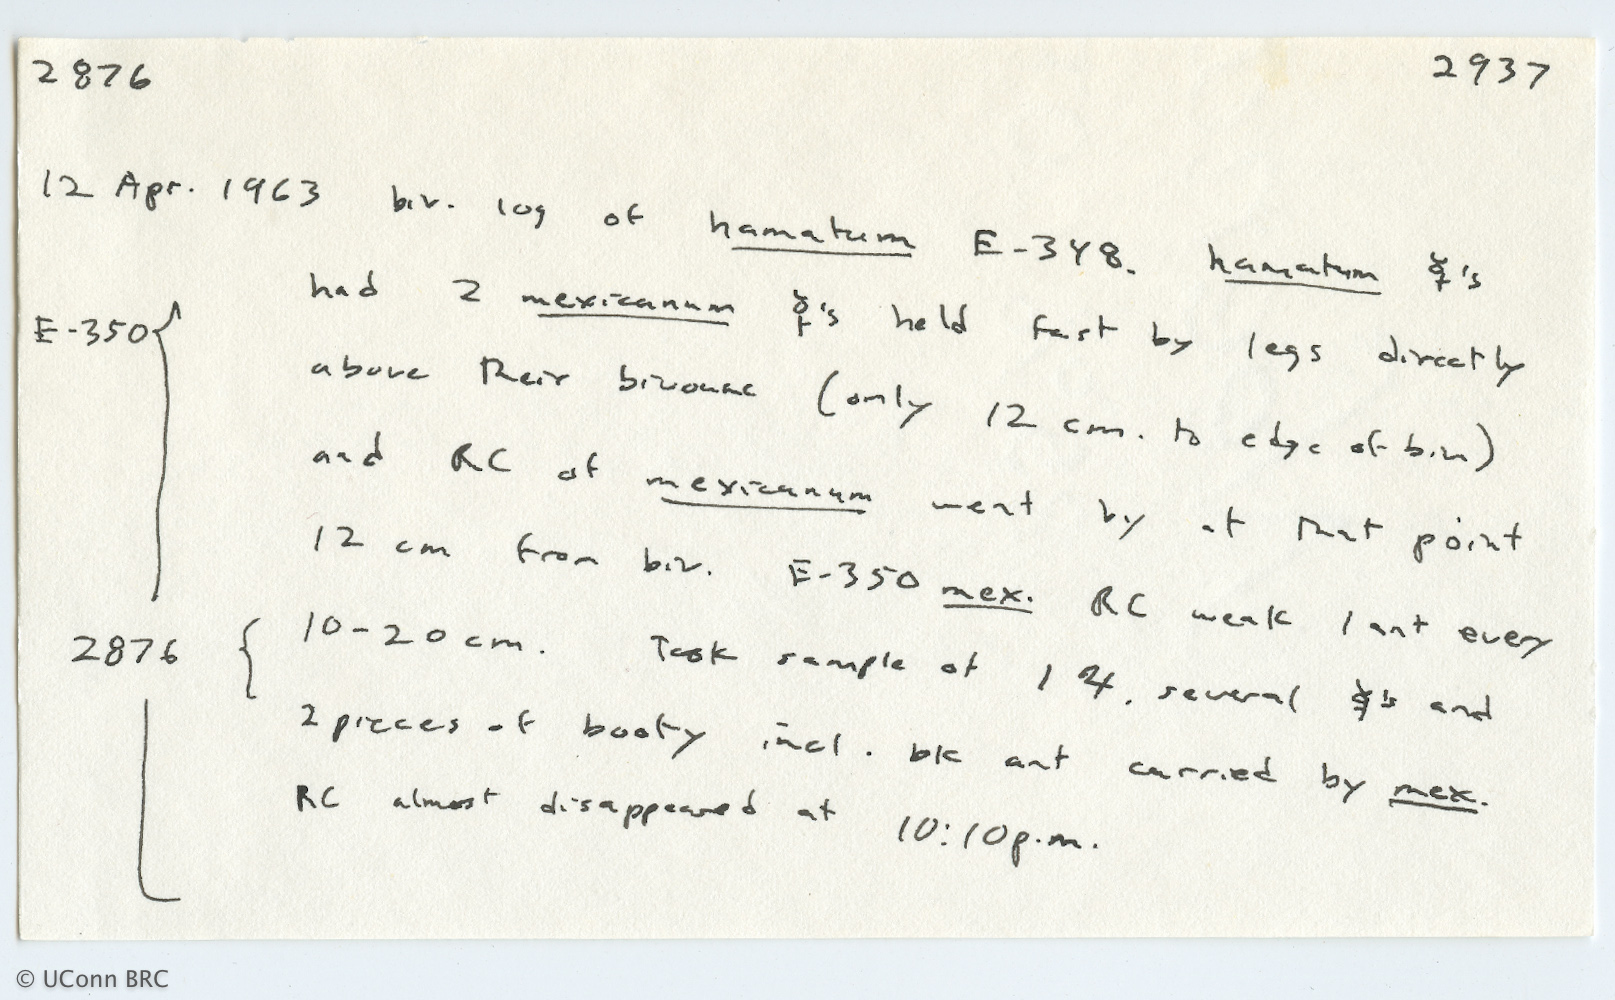 2876 2937
12 Apr. 1963 biv. log of hamatum E-348. hamatum ☿'s
E-350 had 2 mexicanum ☿'s held fast by legs directly
above their bivouac (only 12 cm. to edge of biv)
and RC of mexicanum went by at that point
12 cm from biv. E-350 mex. RC weak 1 ant every
2876 { 10-20 cm. Took sample of 1 ♃, several ☿'s and
2 pieces of booty incl. bk ant carried by mex.
RC almost disappeared at 10:10 p.m.
© UConn BRC